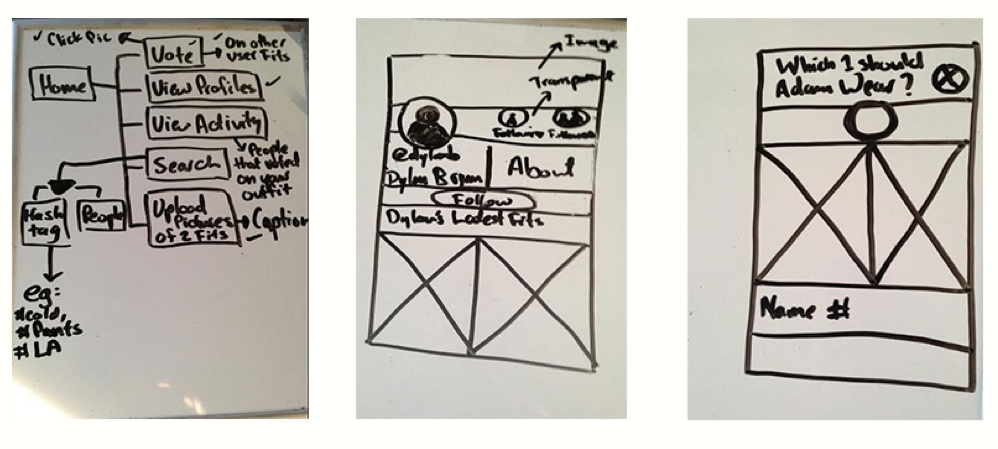 ✓ Click Pic
Vote ✓
On other
User Fits
Home
View Profiles ✓
View Activity
People
that voted
on your
outfit
Search
Hash
tag
People
Upload
Pictures
of 2 Fits
Caption
eg:
#cold,
#Pants
#LA
Image
Transparent
Following Followers
Dylan
About
Follow
Dylan's Latest Fits
Which I should
Adam Wear?
X
Name #